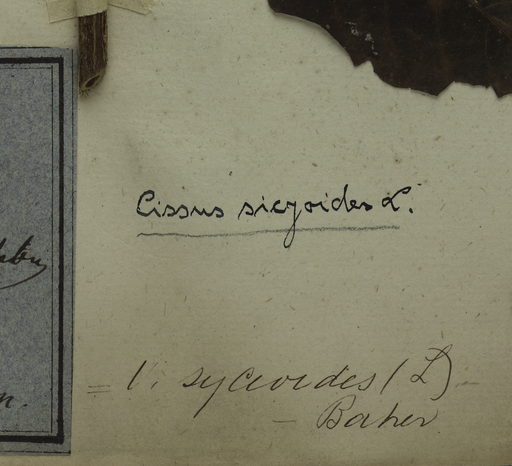 Cissus sicyoides L.
= V. sycioides (L)
- Baker